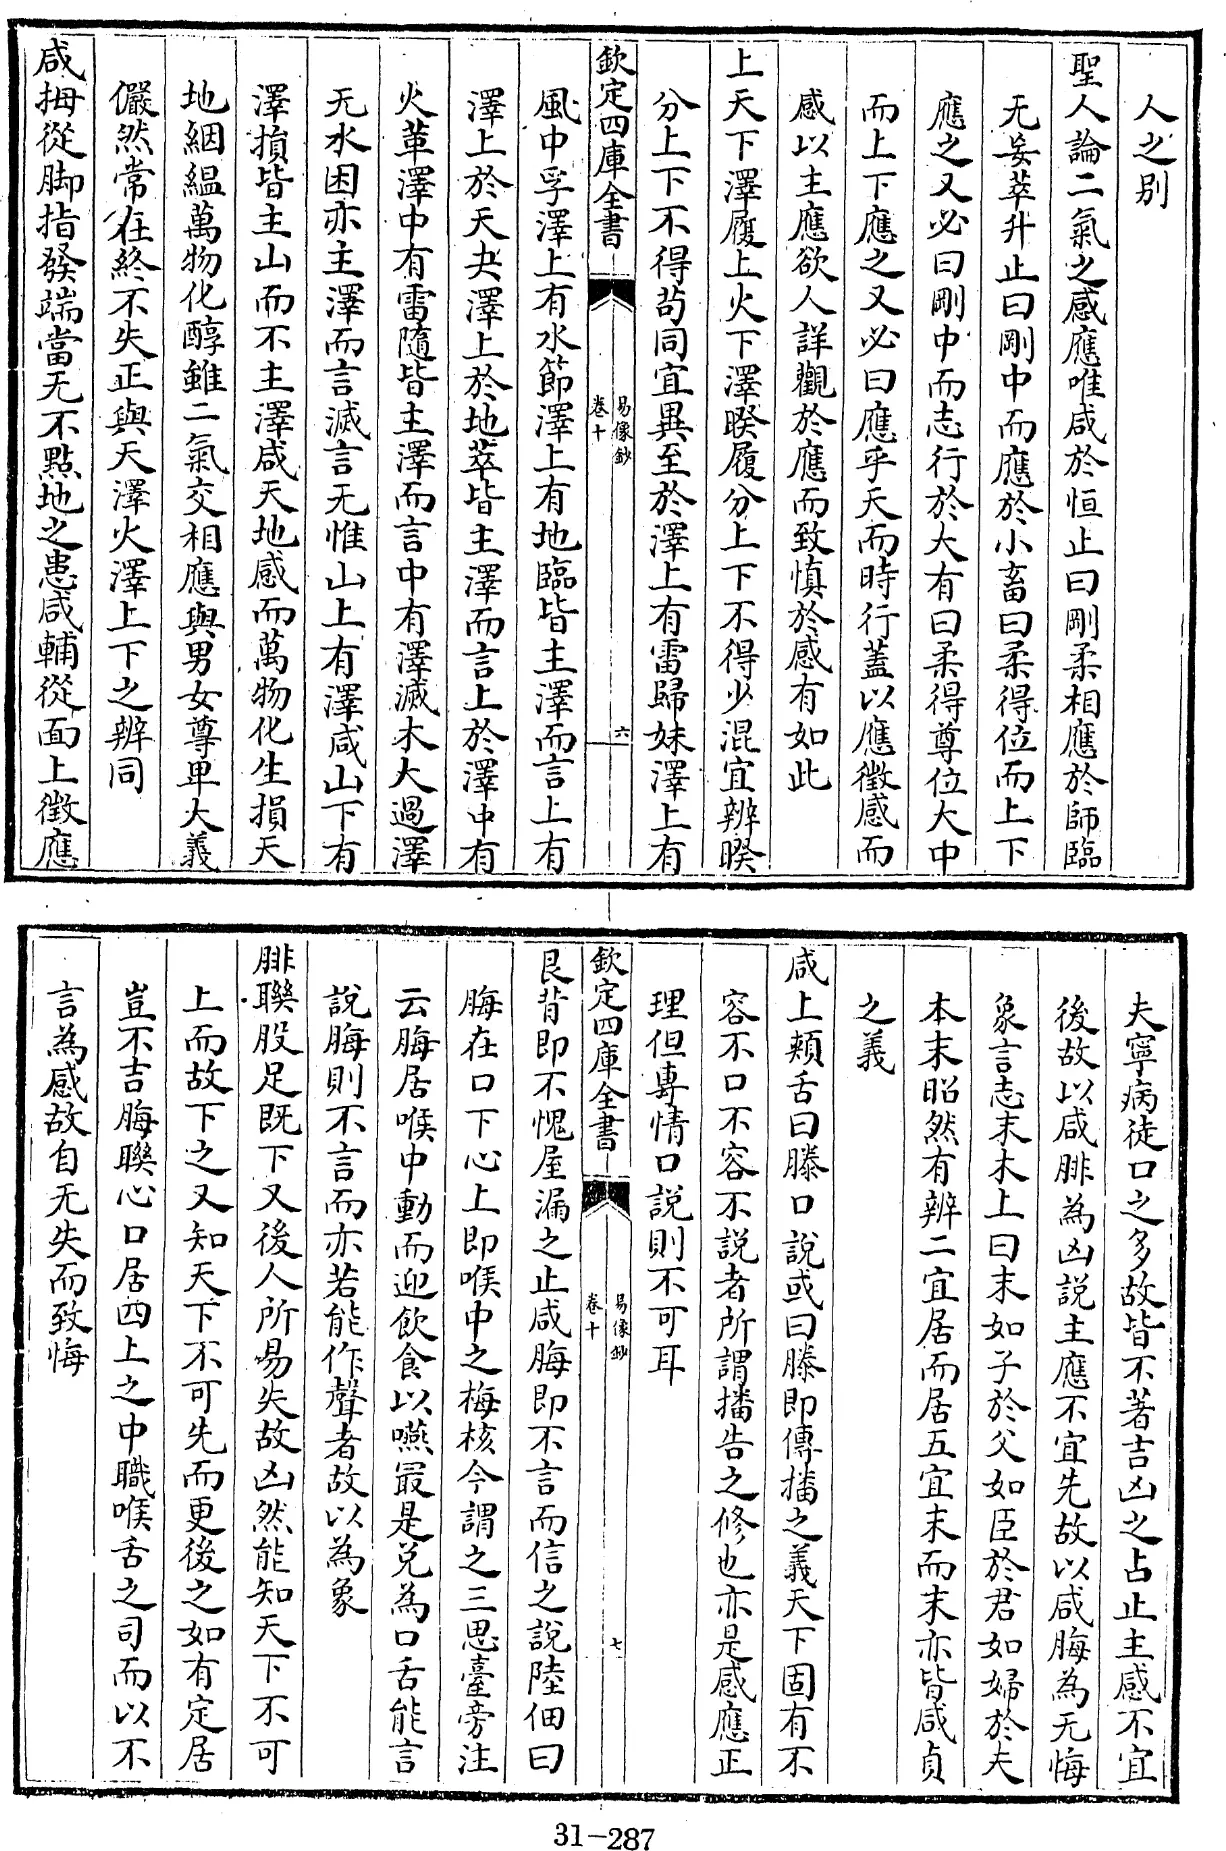 人之别
聖人論二氣之感應唯咸於恒止曰剛柔相應於師臨
无妄萃升止曰剛中而應於小畜曰柔得位而上下
應之又必曰剛中而志行於大有曰柔得尊位大中
而上下應之又必曰應乎天而時行蓋以應徴感而
感以主應欲人詳觀於應而致慎於感有如此
上天下澤履上火下澤睽履分上下不得少混宜辨睽
分上下不得茍同宜異至於澤上有雷歸妹澤上有
欽定四庫全書
易像鈔
卷十
六
風中孚澤上有水節澤上有地臨皆主澤而言上有
澤上於天夬澤上於地萃皆主澤而言上於澤中有
火革澤中有雷隨皆主澤而言中有澤滅木大過澤
无水困亦主澤而言滅言无惟山上有澤咸山下有
澤損皆主山而不主澤咸天地感而萬物化生損天
地絪縕萬物化醇雖二氣交相應與男女尊卑大義
儼然常在終不失正與天澤火澤上下之辨同
咸拇從脚指發端當无不點地之患咸輔從面上徴應
夫寧病徒口之多故皆不著吉凶之占止主感不宜
後故以咸腓為凶説主應不宜先故以咸脢為无悔
象言志末木上曰末如子於父如臣於君如婦於夫
本末昭然有辨二宜居而居五宜末而末亦皆咸貞
之義
咸上頰舌曰滕口説或曰滕即傳播之義天下固有不
容不口不容不説者所謂播告之修也亦是感應正
理但專情口説則不可耳
欽定四庫全書
易像鈔
卷十
七
艮背即不愧屋漏之止咸脢即不言而信之説陸佃曰
脢在口下心上即喉中之梅核今謂之三思臺旁注
云脢居喉中動而迎飲食以嚥最是兌為口舌能言
説脢則不言而亦若能作聲者故以為象
腓聯股足既下又後人所易失故凶然能知天下不可
上而故下之又知天下不可先而更後之如有定居
豈不吉脢聯心口居四上之中職喉舌之司而以不
言為感故自无失而致悔
31-287